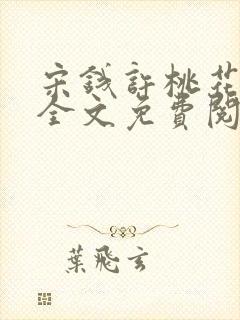 宋钱許桃花
全文免費閱
葉飛玄